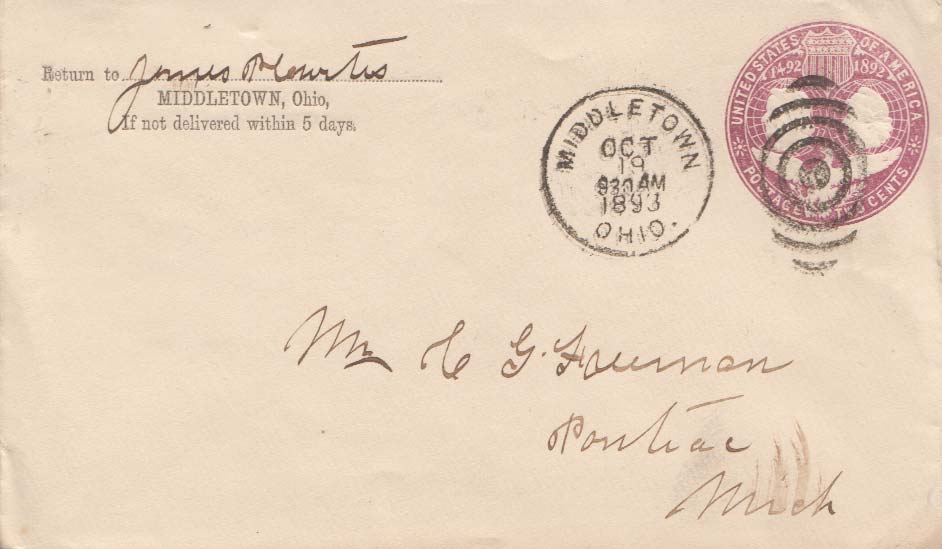 Return to James P Courtis
MIDDLETOWN, Ohio,
If not delivered within 5 days.
MIDDLETOWN
OCT
19
930 AM
1893
OHIO.
UNITED STATES OF AMERICA
1492 1892
POSTAGE TWO CENTS
Mr H G. Freeman
Pontiac
Mich